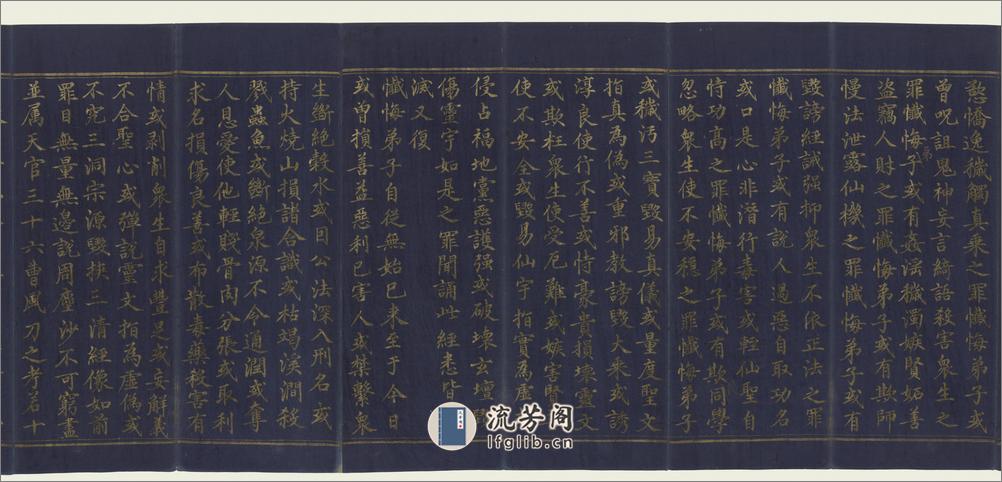 愆憍逸穢觸真乘之罪懺悔弟子或
曾呪詛鬼神妄言綺語殺害衆生之
罪懺悔子或有姦淫穢濁嫉賢妬善
弟
盜竊人財之罪懺悔弟子或有欺師
慢法泄露仙機之罪懺悔弟子或有
毀謗經誡强抑衆生不依正法之罪
懺悔弟子或有說人過惡自取功名
或口是心非潛行毒害或輕仙聖自
恃功高之罪懺悔弟子或有欺同學
忽略衆生使不安穩之罪懺悔弟子
或穢污三寶毀易真儀或量度聖文
指真為偽或重邪教謗毀大乘或謗
淳良使行不善或恃豪貴損壞靈文
或欺枉衆生使受厄難或嫉害賢
使不安全或毀易仙宇指實為虛
侵占福地黨惡護强或破壞玄壇
傷靈宇如是之罪聞誦此經悉皆
滅又復
懺悔弟子自從無始已來至于今日
或曾損善益惡利己害人或禁繫衆
生斷絕穀水或因公法深入刑名或
持火燒山損諸含識或枯竭溪澗殺
戮蟲魚或斷絕泉源不令通潤或奪
人恩愛使他輕賤骨肉分張或取利
求名損傷良善或布散毒藥殺害有
情或剥削衆生自求豐足或妄解義
不合聖心或殫說靈文指為虛偽或
不究三洞宗源毀抶三清經像如前
罪目無量無邊說周塵沙不可窮盡
並屬天官三十六曹風刀之考若十
流芳阁
lfglib.cn